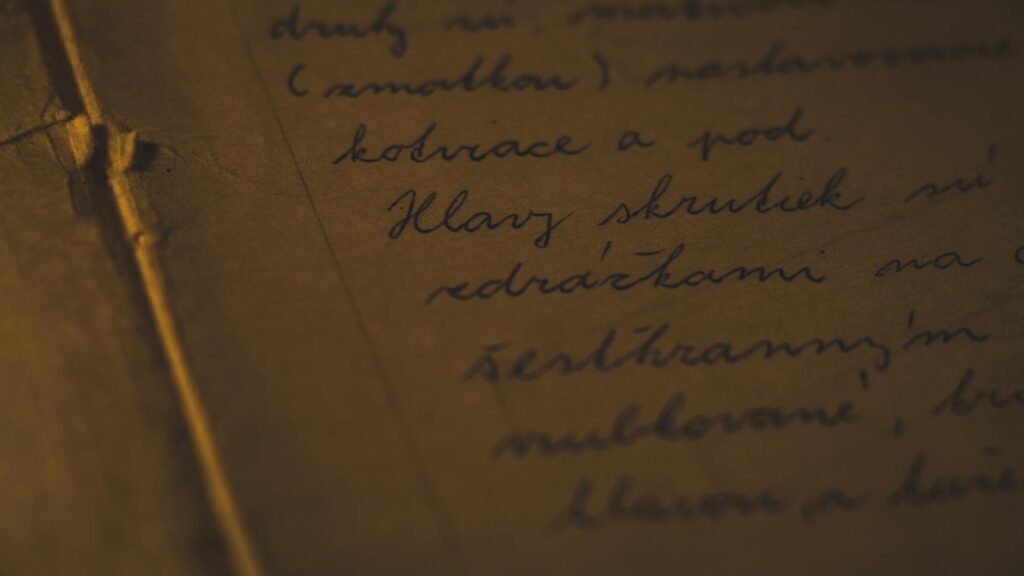 druhy sú:
(zmatkou) nastavovacie
kotviace a pod.
Hlavy skrutiek sú
zdrážkami na
šesťhranným
vrubkované,
hlavou, a